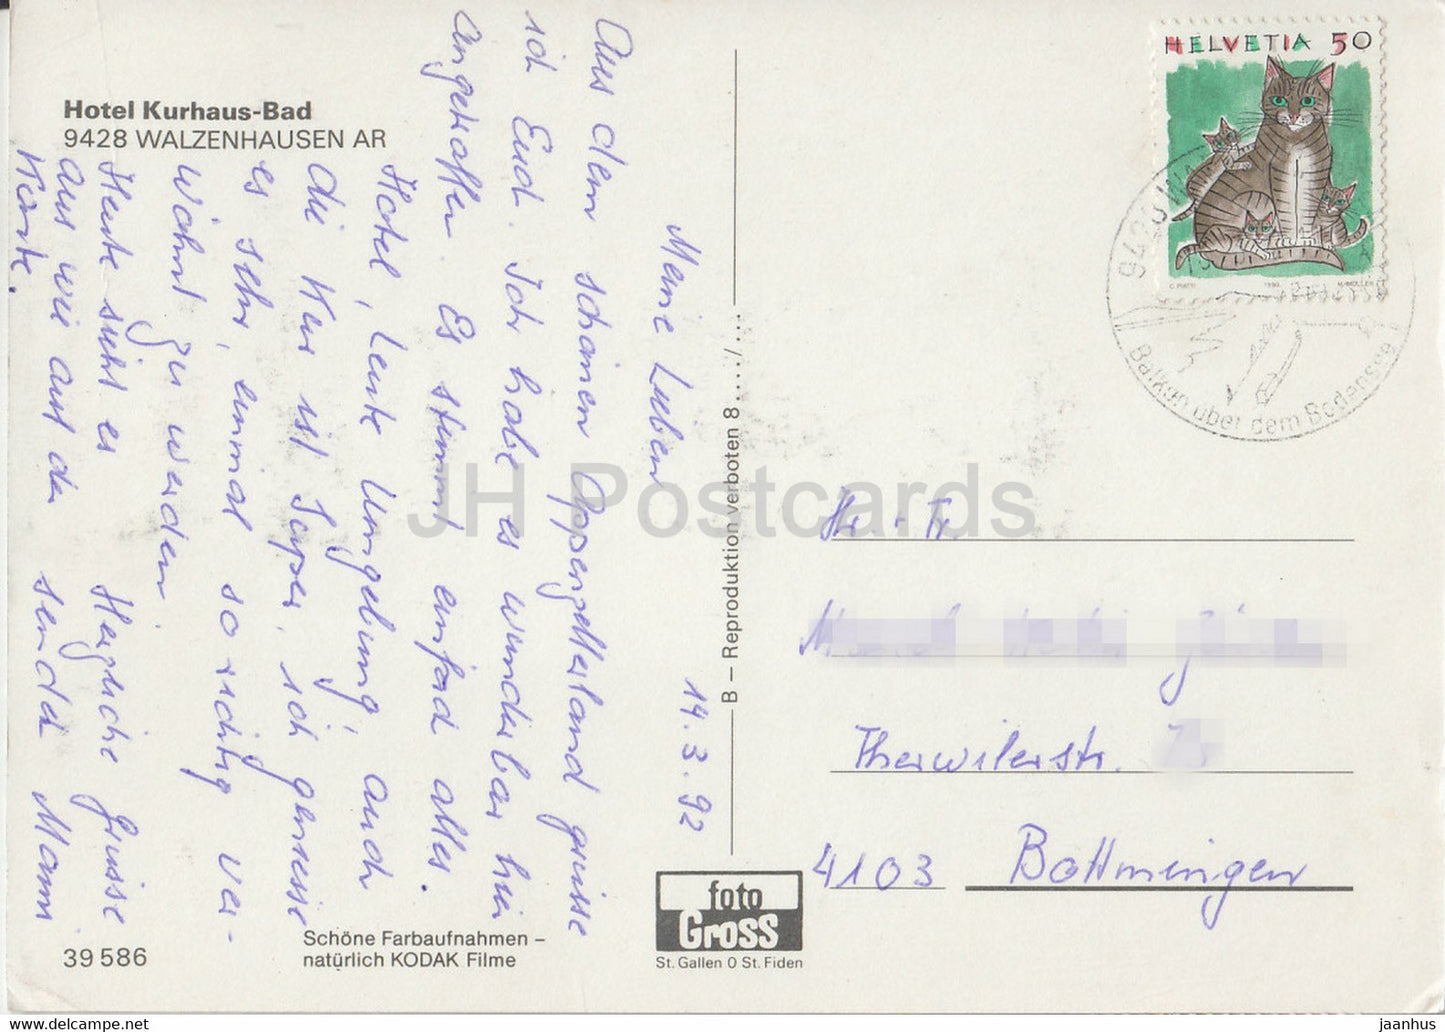 Hotel Kurhaus-Bad
9428 WALZENHAUSEN AR
14.3.92
Meine Lieben
Aus dem schönen Appenzellerland grüsse
ich Euch. Ich habe es wunderbar hier
angetroffen. Es stimmt einfach alles.
Hotel, Leute Umgebung, auch
die Kur ist Super, ich geniesse
es sehr, einmal so richtig ver-
wöhnt zu werden.
Heute sieht es
aus wie auf der
Karte.
Herzliche Grüsse
sendet Mami
39 586
Schöne Farbaufnahmen –
natürlich KODAK Filme
B – Reproduktion verboten 8..../...
foto
Gross
St. Gallen O St. Fiden
HELVETIA 50
C. PIATTI 1990
Balkon über dem Bodensee
Hr. + Fr.
Therwilerstr.
4103 Bottmingen
JH Postcards
delcampe.net
jaanhus